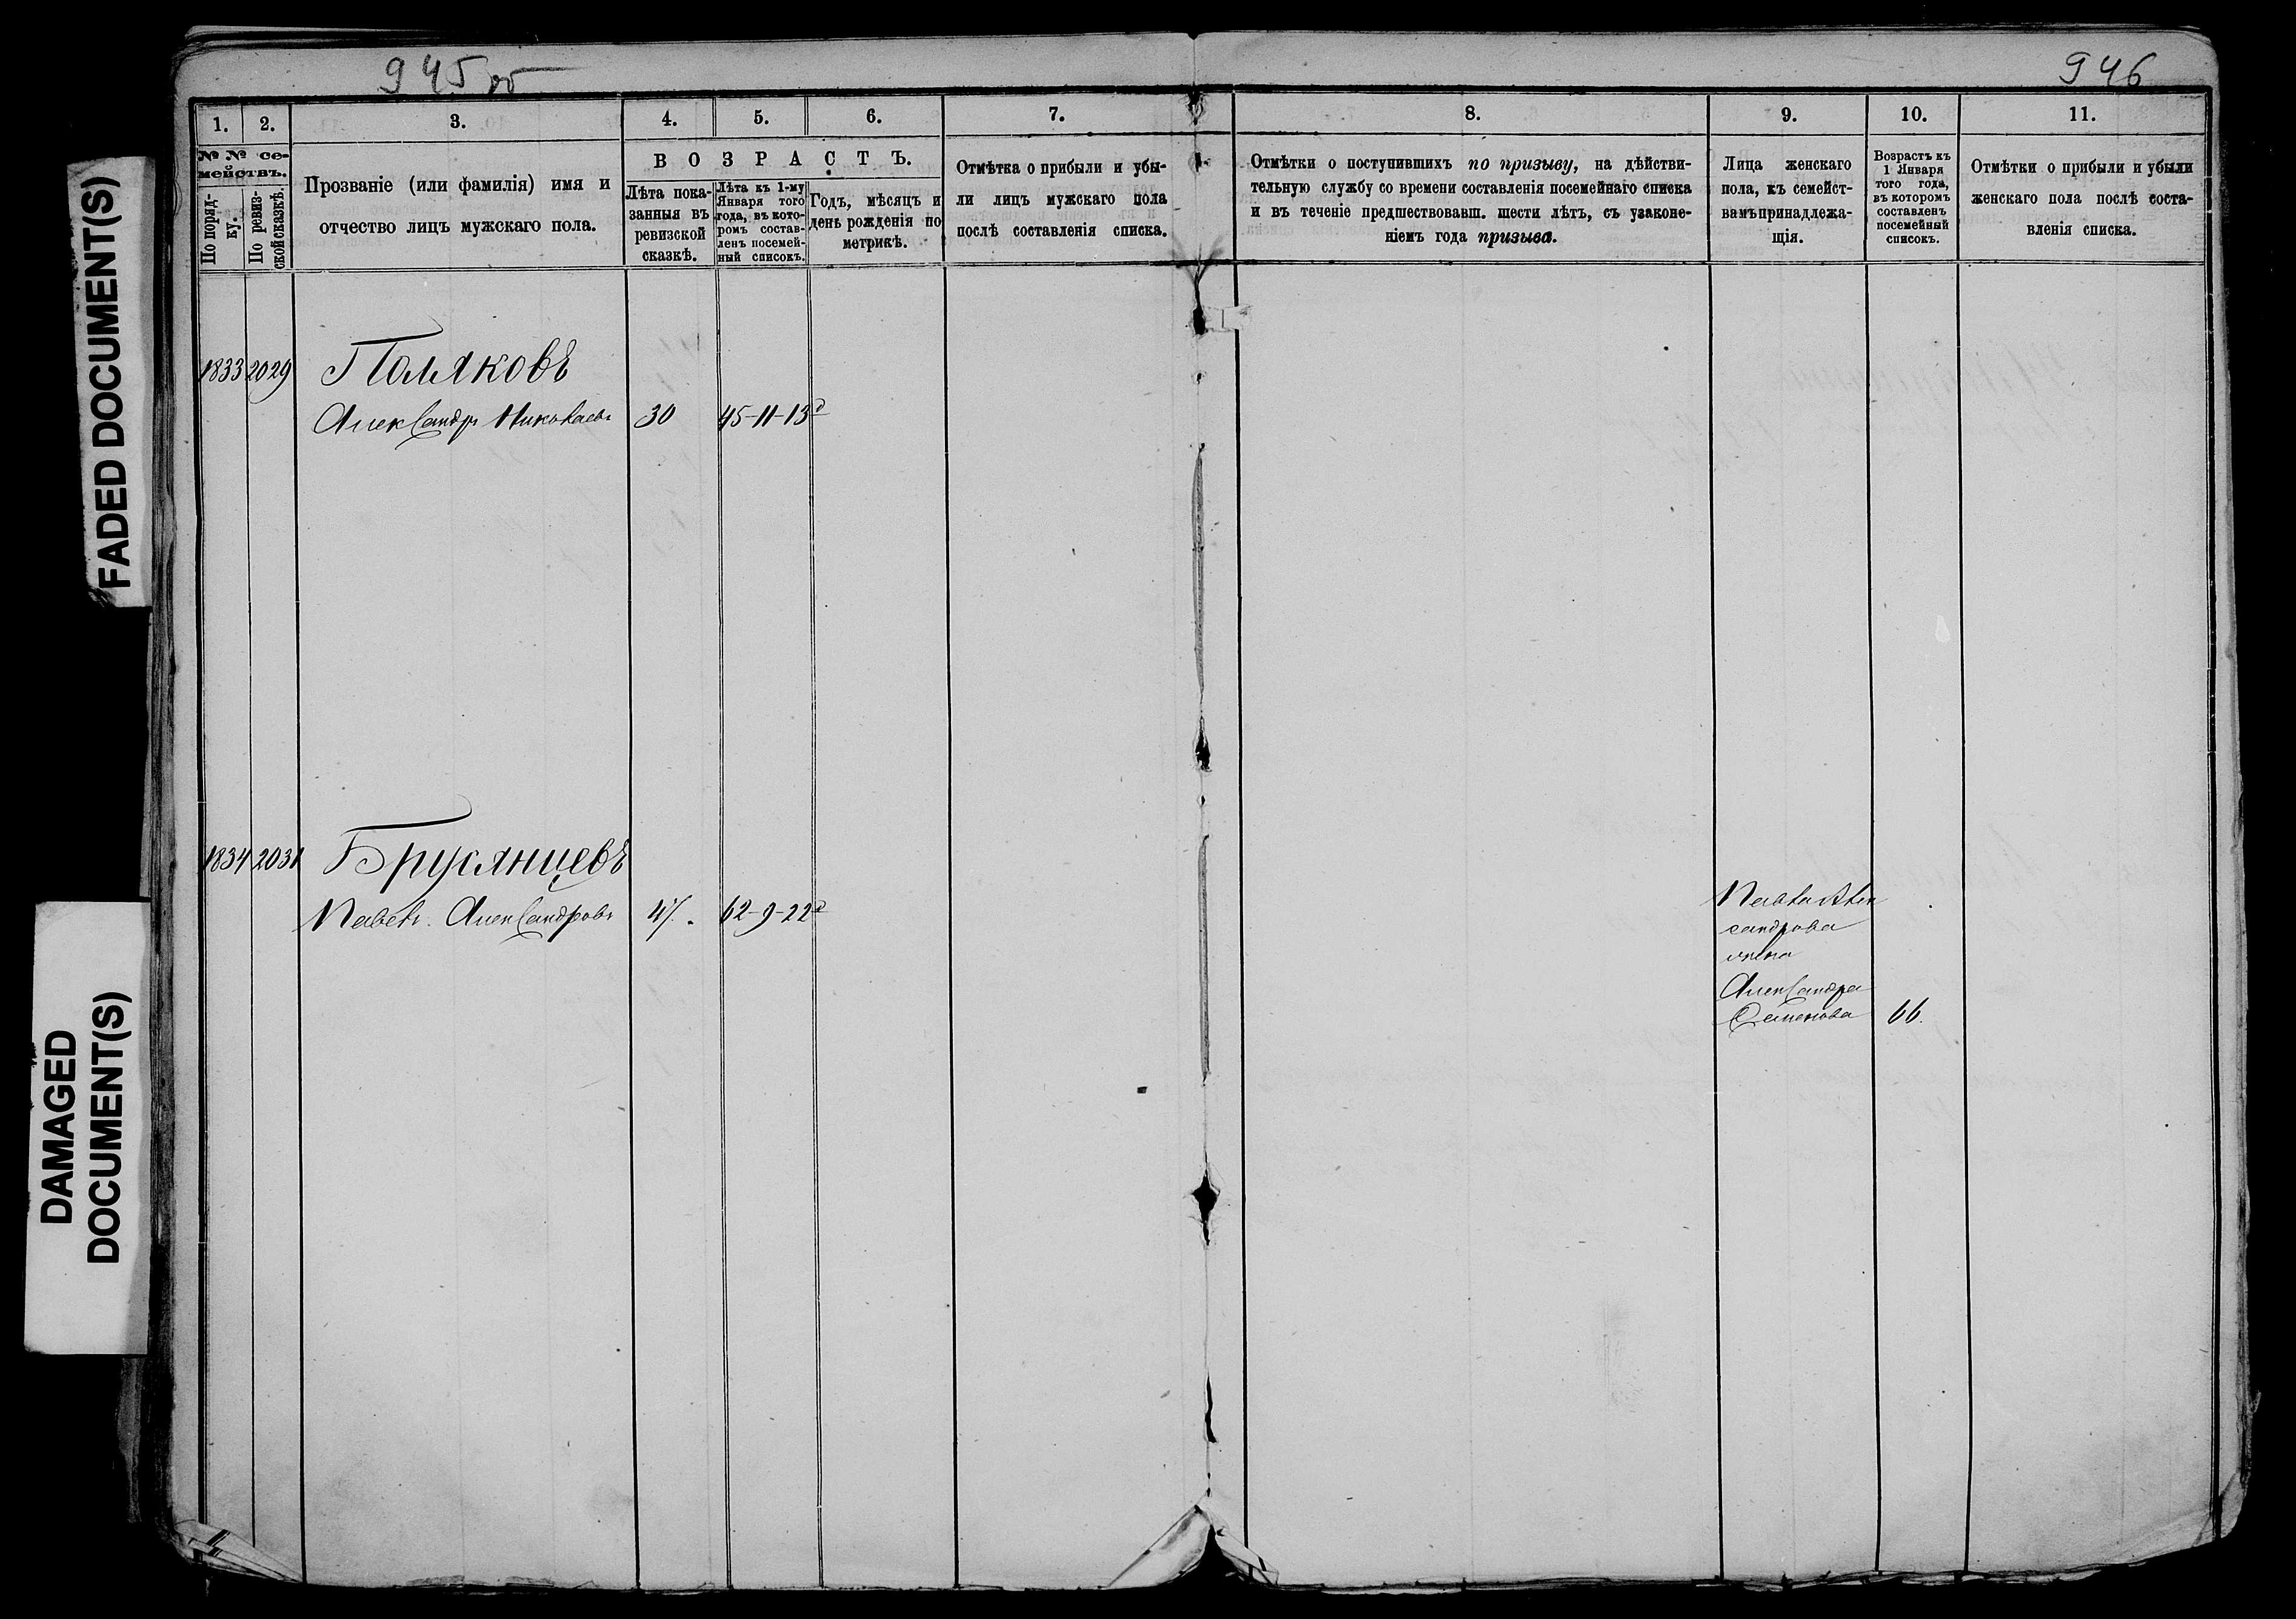 945 об
946
FADED DOCUMENT(S)
DAMAGED
DOCUMENT(S)
1. 2. 3. 4. 5. 6. 7. 8. 9. 10. 11.
№ № се-
мействъ.
По поряд-
ку.
По ревиз-
ской сказкѣ.
Прозваніе (или фамилія) имя и
отчество лицъ мужскаго пола.
ВОЗРАСТЪ.
Лѣта пока-
занныя въ
ревизской
сказкѣ.
Лѣта къ 1-му
Января того
года, въ кото-
ромъ состав-
ленъ посемей-
ный списокъ.
Годъ, мѣсяцъ и
день рожденія по
метрикѣ.
Отмѣтка о прибыли и убы-
ли лицъ мужскаго пола
послѣ составленія списка.
Отмѣтки о поступившихъ по призыву, на дѣйстви-
тельную службу со времени составленія посемейнаго списка
и въ теченіе предшествовавш. шести лѣтъ, съ узаконе-
ніемъ года призыва.
Лица женскаго
пола, къ семейст-
вамъ принадлежа-
щія.
Возрастъ къ
1 Января
того года,
въ которомъ
составленъ
посемейный
списокъ.
Отмѣтки о прибыли и убыли
женскаго пола послѣ соста-
вленія списка.
1833 2029 Поляковъ
Александръ Николаевъ 30 45-11-13д
1834 2031 Брусянцевъ
Павелъ Александровъ 47. 62-9-22д
Павла Алек
сандрова
жена
Александра
Семенова 66.